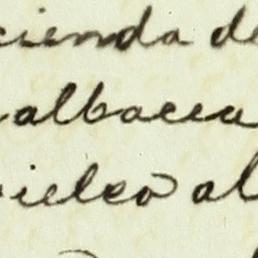 cienda de
albacea
ieleo al